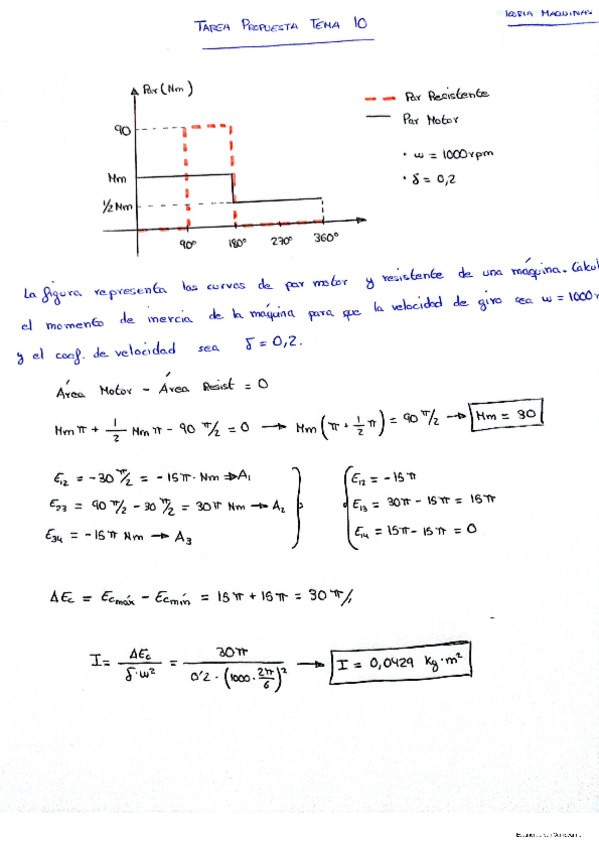 TAREA PROPUESTA TEMA 10
TEORIA MAQUINAS
Par (Nm)
90
Mm
1/2 Mm
90° 180° 270° 360°
Par Resistente
Par Motor
• ω = 1000 rpm
• δ = 0,2
La figura representa las curvas de par motor y resistente de una máquina. Calcul
el momento de inercia de la máquina para que la velocidad de giro sea ω = 1000 r
y el coef. de velocidad sea δ = 0,2.
Área Motor - Área Resist = 0
Mm π + 1/2 Mm π - 90 π/2 = 0 → Mm (π + 1/2 π) = 90 π/2 → Mm = 30
E12 = -30 π/2 = -15π · Nm ⇒ A1
E23 = 90 π/2 - 30 π/2 = 30π Nm → A2
E34 = -15π Nm → A3
E12 = -15π
E13 = 30π - 15π = 15π
E14 = 15π - 15π = 0
ΔEc = Ecmáx - Ecmín = 15π + 15π = 30π/,
I = ΔEc / δ·ω² = 30π / 0'2 · (1000 · 2π/6)² → I = 0,0429 Kg·m²